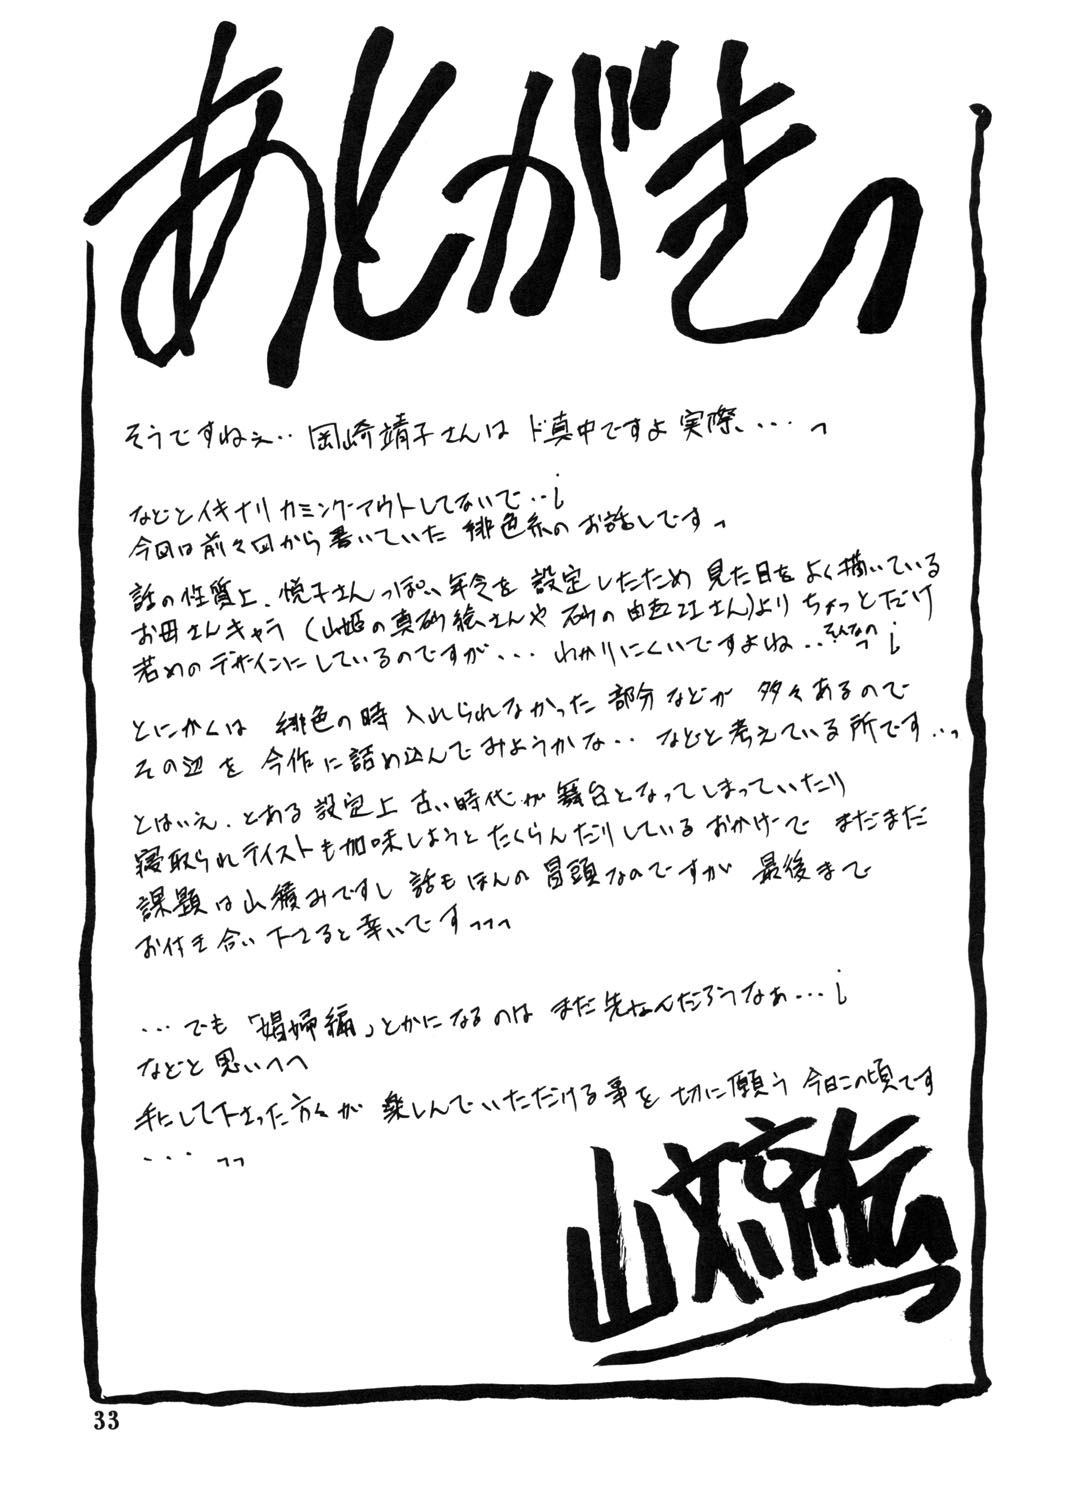 あとがきっ
そうですねぇ‥岡崎靖子さんは ド真中ですよ実際‥‥っ
などとイキナリ カミングアウトしてないで‥¡
今回は前々回から書いていた 緋色系のお話しですっ
話の性質上、悦子さんっぽい年令を 設定したため 見た目をよく描いている
お母さんキャラ (山姫の真砂絵さんや 砂の由吾江さん)より ちょっとだけ
若めのデザインにしているのですが‥‥ わかりにくいですよね‥そんなのっ¡
とにかくは 緋色の時 入れられなかった 部分などが 多々あるので
その辺を 今作に詰め込んでみようかな‥ などと考えている所です‥っ
とはいえ、とある設定上 古い時代が舞台となってしまっていたり
寝取られテイストも加味しようと たくらんだりしているおかげで まだまだ
課題は山積みですし 話もほんの冒頭なのですが 最後まで
お付き合い下さると幸いですっっっ
‥‥でも「娼婦編」とかになるのは まだ先なんだろうなぁ‥‥¡
などと思いつつ
手にして下さった方々が 楽しんでいただける事を 切に願う 今日この頃です
‥‥っっ
山文京伝
33